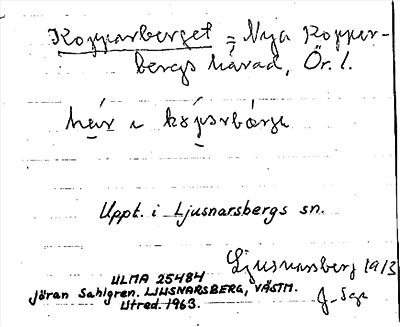 Kopparberget = Nya Kopparbergs härad, Ör. l.
här i kópərbárjə
Uppt. i Ljusnarsbergs sn.
Ljusnarsberg 1913
J. Sgn
ULMA 25484
Jöran Sahlgren. LJUSNARSBERG, VÄSTM.
Utred. 1963.